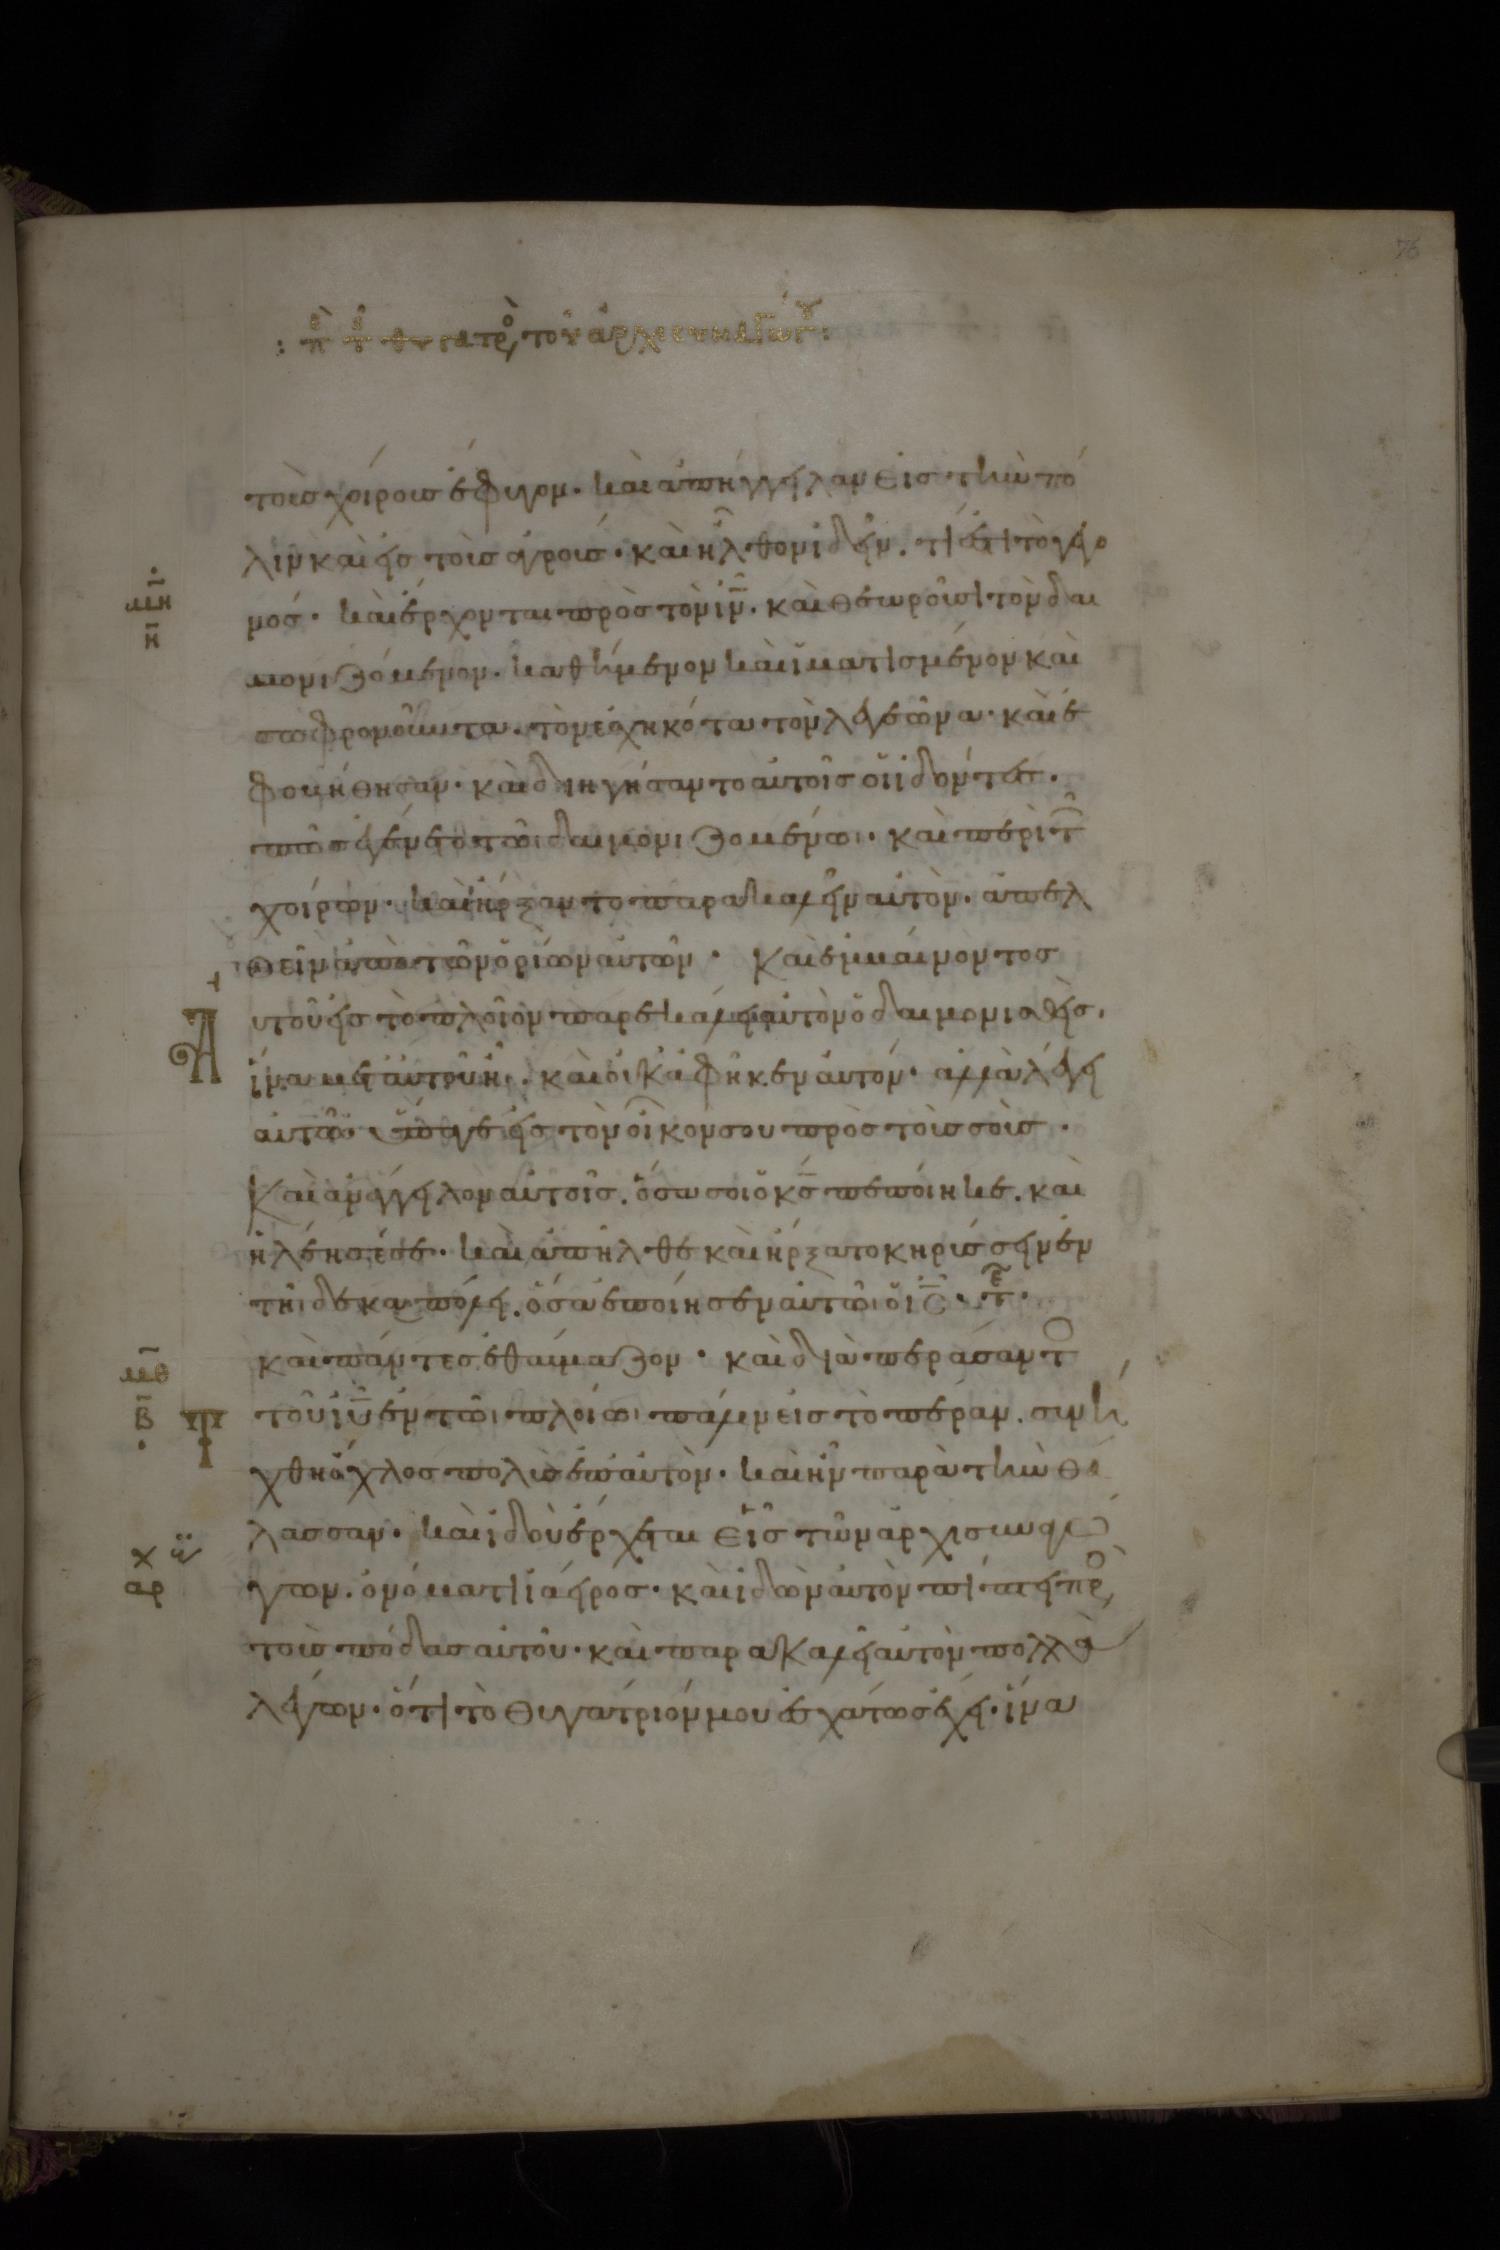 : πε τ θυγατρὸ τοῦ ἀρχισυναγώγου :
76
τοὺς χοίρους ἔφυγον · καὶ ἀπήγγειλαν εἰς τὴν πό
λιν καὶ εἰς τοὺς ἀγρούς · καὶ ἦλθον ἰδεῖν . τί ἐστι τὸ γεγο
μ̅η̅
νός · καὶ ἔρχονται πρὸς τὸν ἰ̅ν̅ . καὶ θεωροῦσι τὸν δαι
η̅
μονιζόμενον . καθήμενον καὶ ἱματισμένον καὶ
σωφρονοῦντα . τὸν ἐσχηκότα τὸν λεγεῶνα · καὶ ἐ
φοβήθησαν · καὶ διηγήσαντο αὐτοῖς οἱ ἰδόντες .
πῶς ἐγένετο τῶι δαιμονιζομένωι · καὶ περὶ τῶν
χοίρων · καὶ ἤρξαντο παρακαλεῖν αὐτὸν . ἀπελ
θεῖν ἀπὸ τῶν ὁρίων αὐτῶν · Καὶ ἐμβαίνοντος
Α υτοῦ εἰς τὸ πλοῖον παρεκάλει αὐτὸν ὁ δαιμονισθεὶς .
ἵνα μετ αὐτοῦ ἦι . καὶ οὐκ ἀφῆκεν αὐτόν · ἀλλὰ λέγει
αὐτῶ · ὕπαγε εἰς τὸν οἶκόν σου πρὸς τοὺς σούς .
Καὶ ἀνάγγειλον αὐτοῖς . ὅσα σοι ὁ κ̅ς̅ πεποίηκε . καὶ
ἠλέησέ σε · καὶ ἀπῆλθε καὶ ἤρξατο κηρύσσειν ἐν
τῆι δεκαπόλει . ὅσα ἐποίησεν αὐτῶι ὁ ι̅ς̅ . τε .
μ̅θ̅
καὶ πάντες ἐθαύμαζον · καὶ διαπεράσαντο
β̅
Τ τοῦ ἰ̅υ̅ ἐν τῶι πλοίωι πάλιν εἰς τὸ πέραν . συνή
χθη ὄχλος πολὺς ἐπ αὐτὸν · καὶ ἦν παρὰ τὴν θά
λασσαν · καὶ ἰδοὺ ἔρχεται εἷς τῶν ἀρχισυναγω
αρχ
γων . ὀνόματι ἰάειρος · καὶ ἰδὼν αὐτὸν πίπτει πρὸ
τοὺς πόδας αὐτοῦ · καὶ παρακαλεῖ αὐτὸν πολλὰ
λέγων · ὅτι τὸ θυγάτριόν μου ἐσχάτως ἔχει . ἵνα